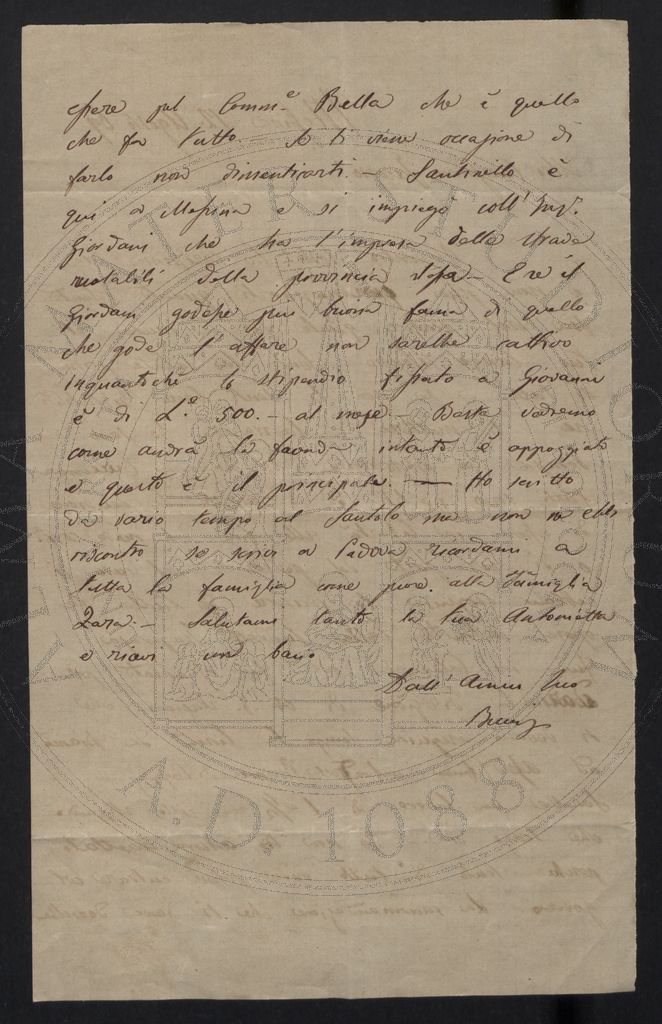 essere pel Comm.e Bella che è quello
che fa tutto. — Se ti viene occasione di
farlo non dimenticarti — Santinello è
qui a Messina e si impiegò coll' Ing.
Giordani che ha l'impresa delle strade
rotabili della provincia stessa — E se il
Giordani godesse più buona fama di quello
che gode l'affare non sarebbe cattivo
inquantochè lo stipendio fissato a Giovanni
è di L.e 500. — al mese — Basta vedremo
come andrà la faccenda intanto è appoggiato
e questo è il principale. — Ho scritto
da vario tempo al Santolo ma non ne ebbi
riscontro se scrivi a Padova ricordami a
tutta la famiglia come pure alla famiglia
Zara. — Salutami tanto la tua Antonietta
e ricevi un bacio
Dall' Amico tuo
A.D. 1088